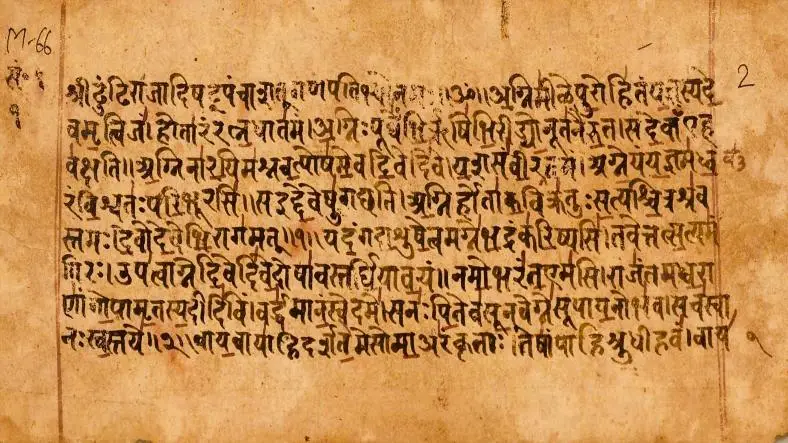 M-66
2
श्रीढुंढिराजादिषट्पंचाशतूगणपतिभ्योनमः॥ॐ॥अग्निमीळेपुरोहितंयज्ञस्यदे
वमृत्विजं।होतारंरत्नधातमं।अग्निःपूर्वेभिर्ऋषिभिरीड्योनूतनैरुत।सदेवाँएह
वक्षति॥अग्निनारयिमश्नवत्पोषमेवदिवेदिवे।यशसंवीरवत्तमं।अग्नेयंयज्ञमध्व
रंविश्वतःपरिभूरसि॥सइद्देवेषुगच्छति।अग्निर्होताकविक्रतुःसत्यश्चित्रश्रव
स्तमः।देवोदेवेभिरागमत्॥१॥यदंगदाशुषेत्वमग्नेभद्रंकरिष्यसि।तवेत्तत्सत्यमं
गिरः।उपत्वाग्नेदिवेदिवेदोषावस्तर्धियावयं॥नमोभरंतएमसि।राजंतमध्वरा
णांगोपामृतस्यदीदिविं।वर्द्धमानंस्वेदमे।सनःपितेवसूनवेग्नेसूपायनोभव।सचस्वा
नःस्वस्तये॥२॥वायवायाहिदर्शतेमेसोमाअरंकृताः।तेषांपाहिश्रुधीहवं।वाय